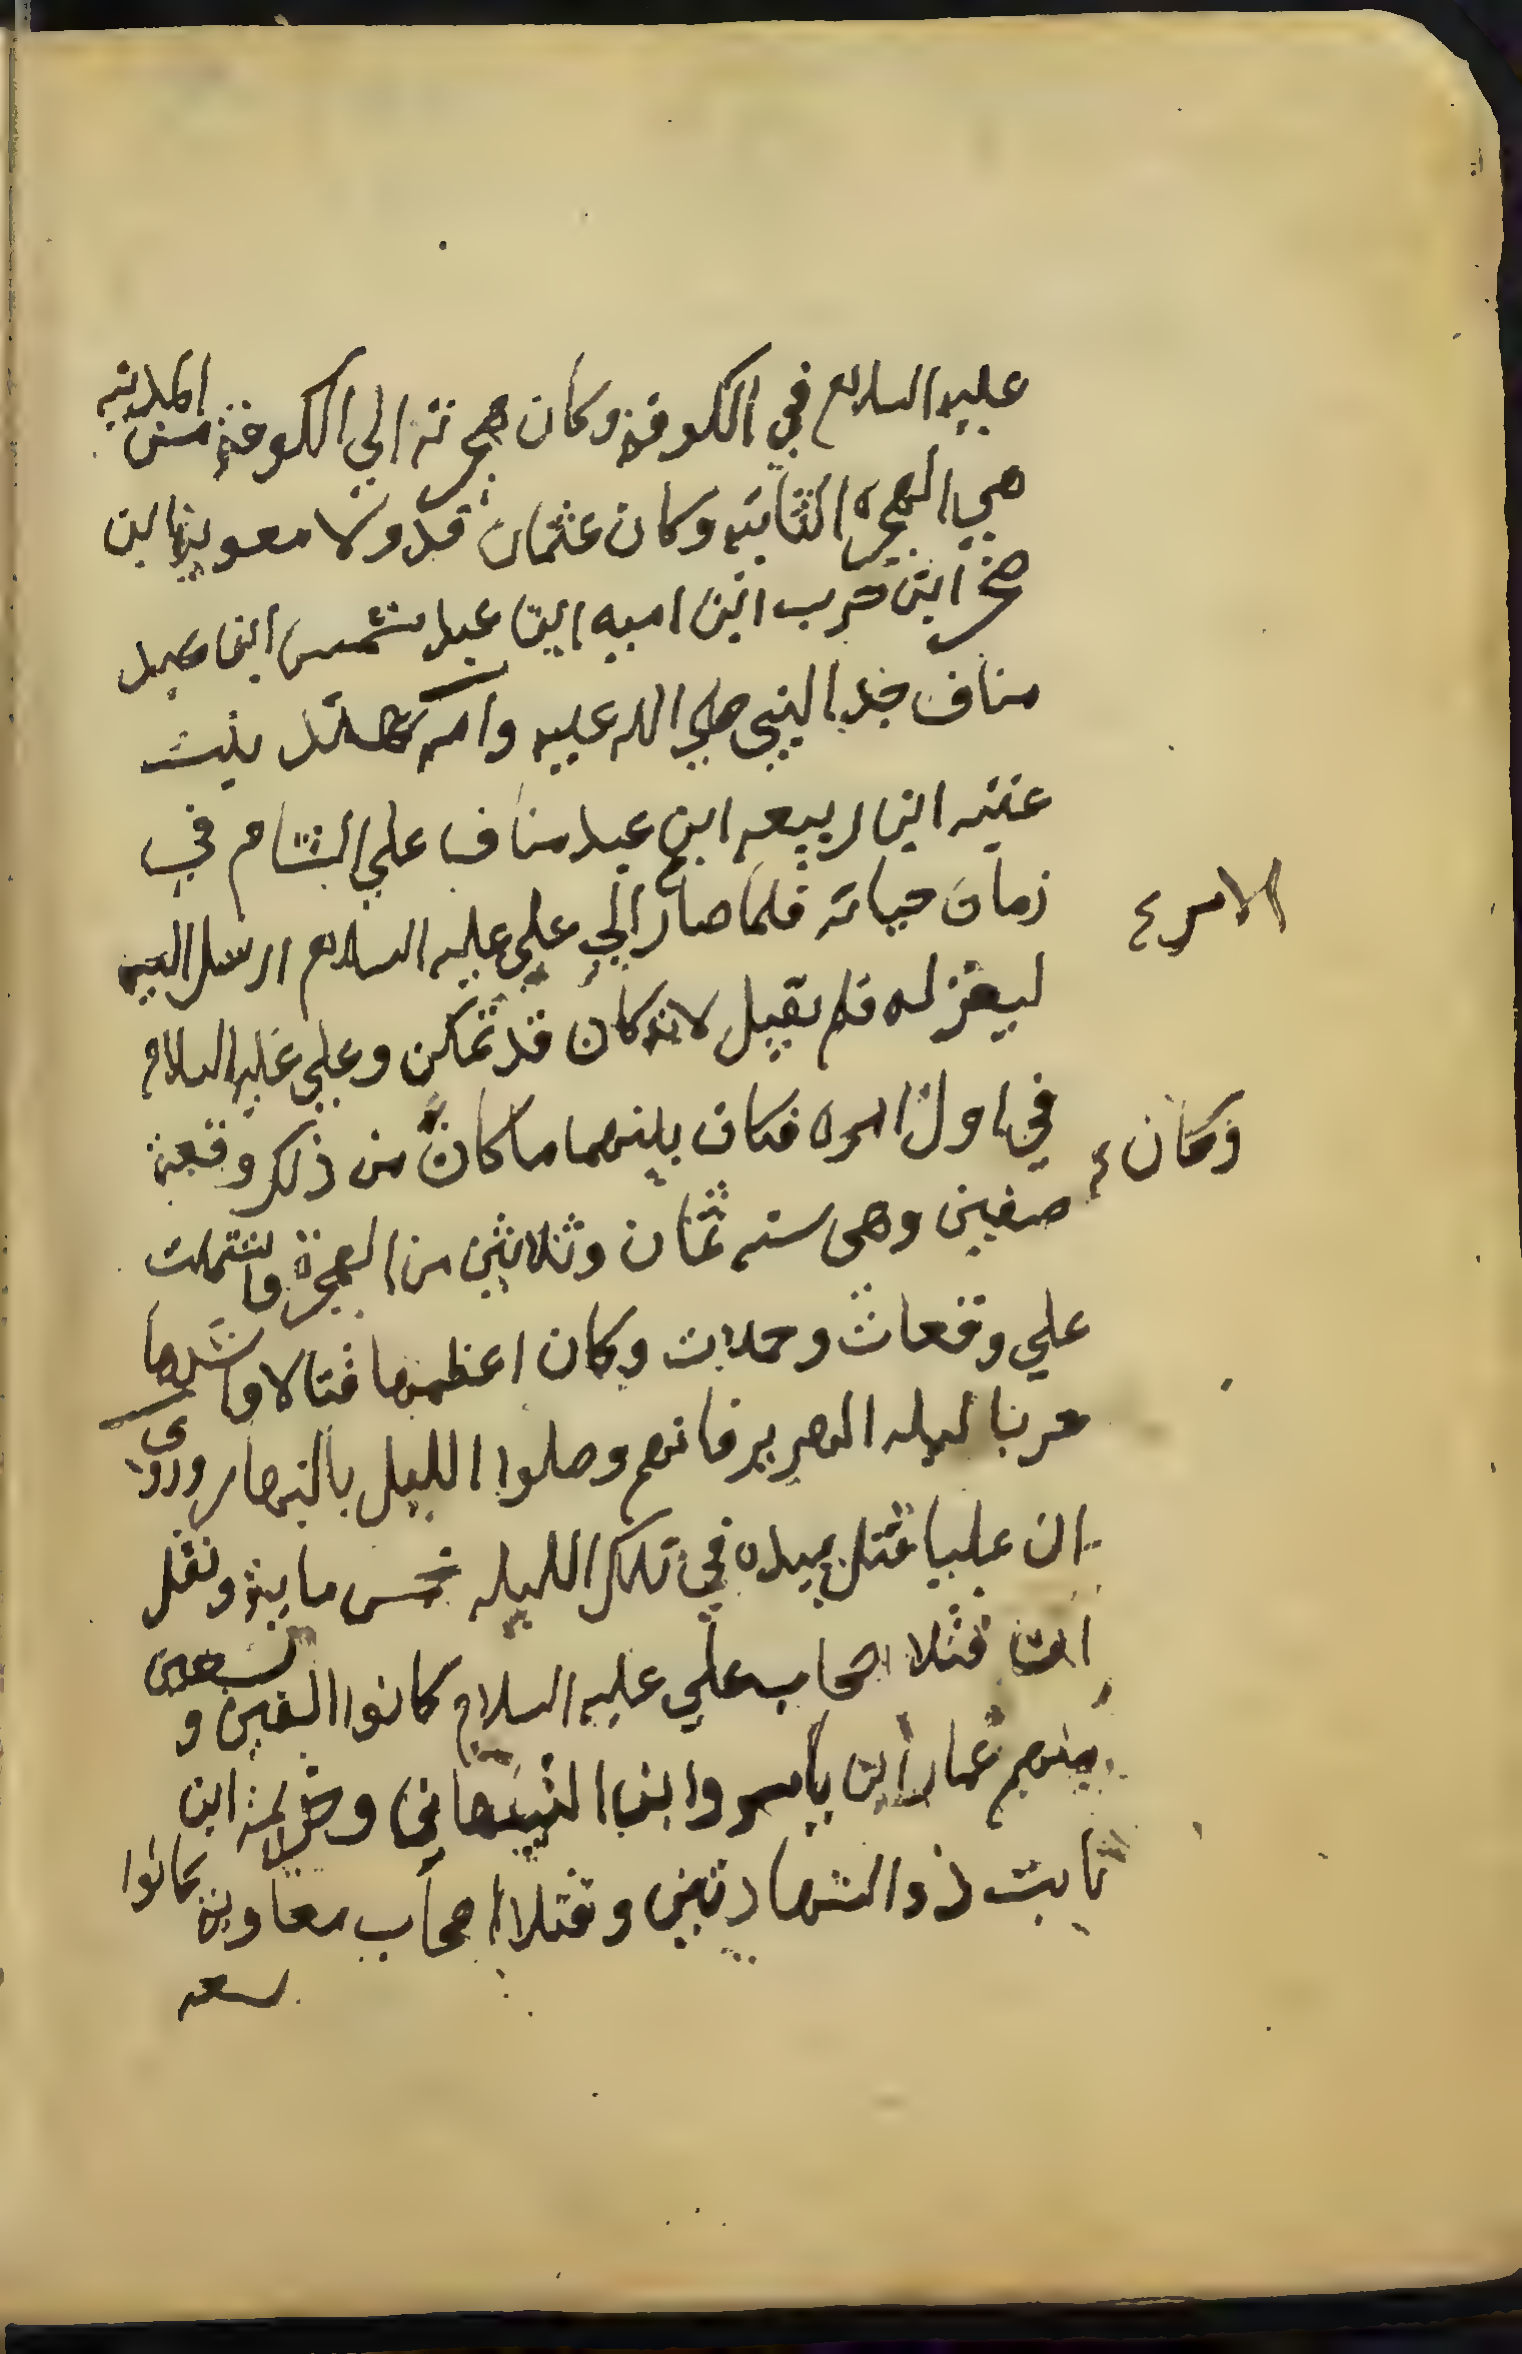 عليه السلام في الكوفة وكان هجرته الي الكوفة من المدينه
هي الهجره الثانيه وكان عثمان قد ولا معوية ابن
صخر ابن حرب ابن اميه ابن عبد شمس ابن عبد
مناف جد النبي صلي الله عليه وامه هند بنت
عتبه ابن ربيعه ابن عبد مناف علي الشام في
زمان حياته فلما صار الي علي عليه السلام ارسل اليه
الامر ع
ليعزله فلم يقبل لانه كان قد تمكن وعلي عليه السلام
في اول امره فكان بينهما ما كان من ذلك وقعة
وكان ع
صفين وهى سنه ثمان وثلاثين من الهجرة واشتملت
علي وقعات وحملات وكان اعظمها قتالا واشدها
حربا ليله الهرير فانهم وصلوا الليل بالنهار وروى
ان عليا قتل بيده في تلك الليله خمس ماية ونقل
ان قتلا اصحاب علي عليه السلام كانوا الفين و تسعين
منهم عمار ابن ياسر وابن التيهاني وخزيمة ابن
ثابت ذو الشهادتين وقتلا اصحاب معاوية كانوا
سعه